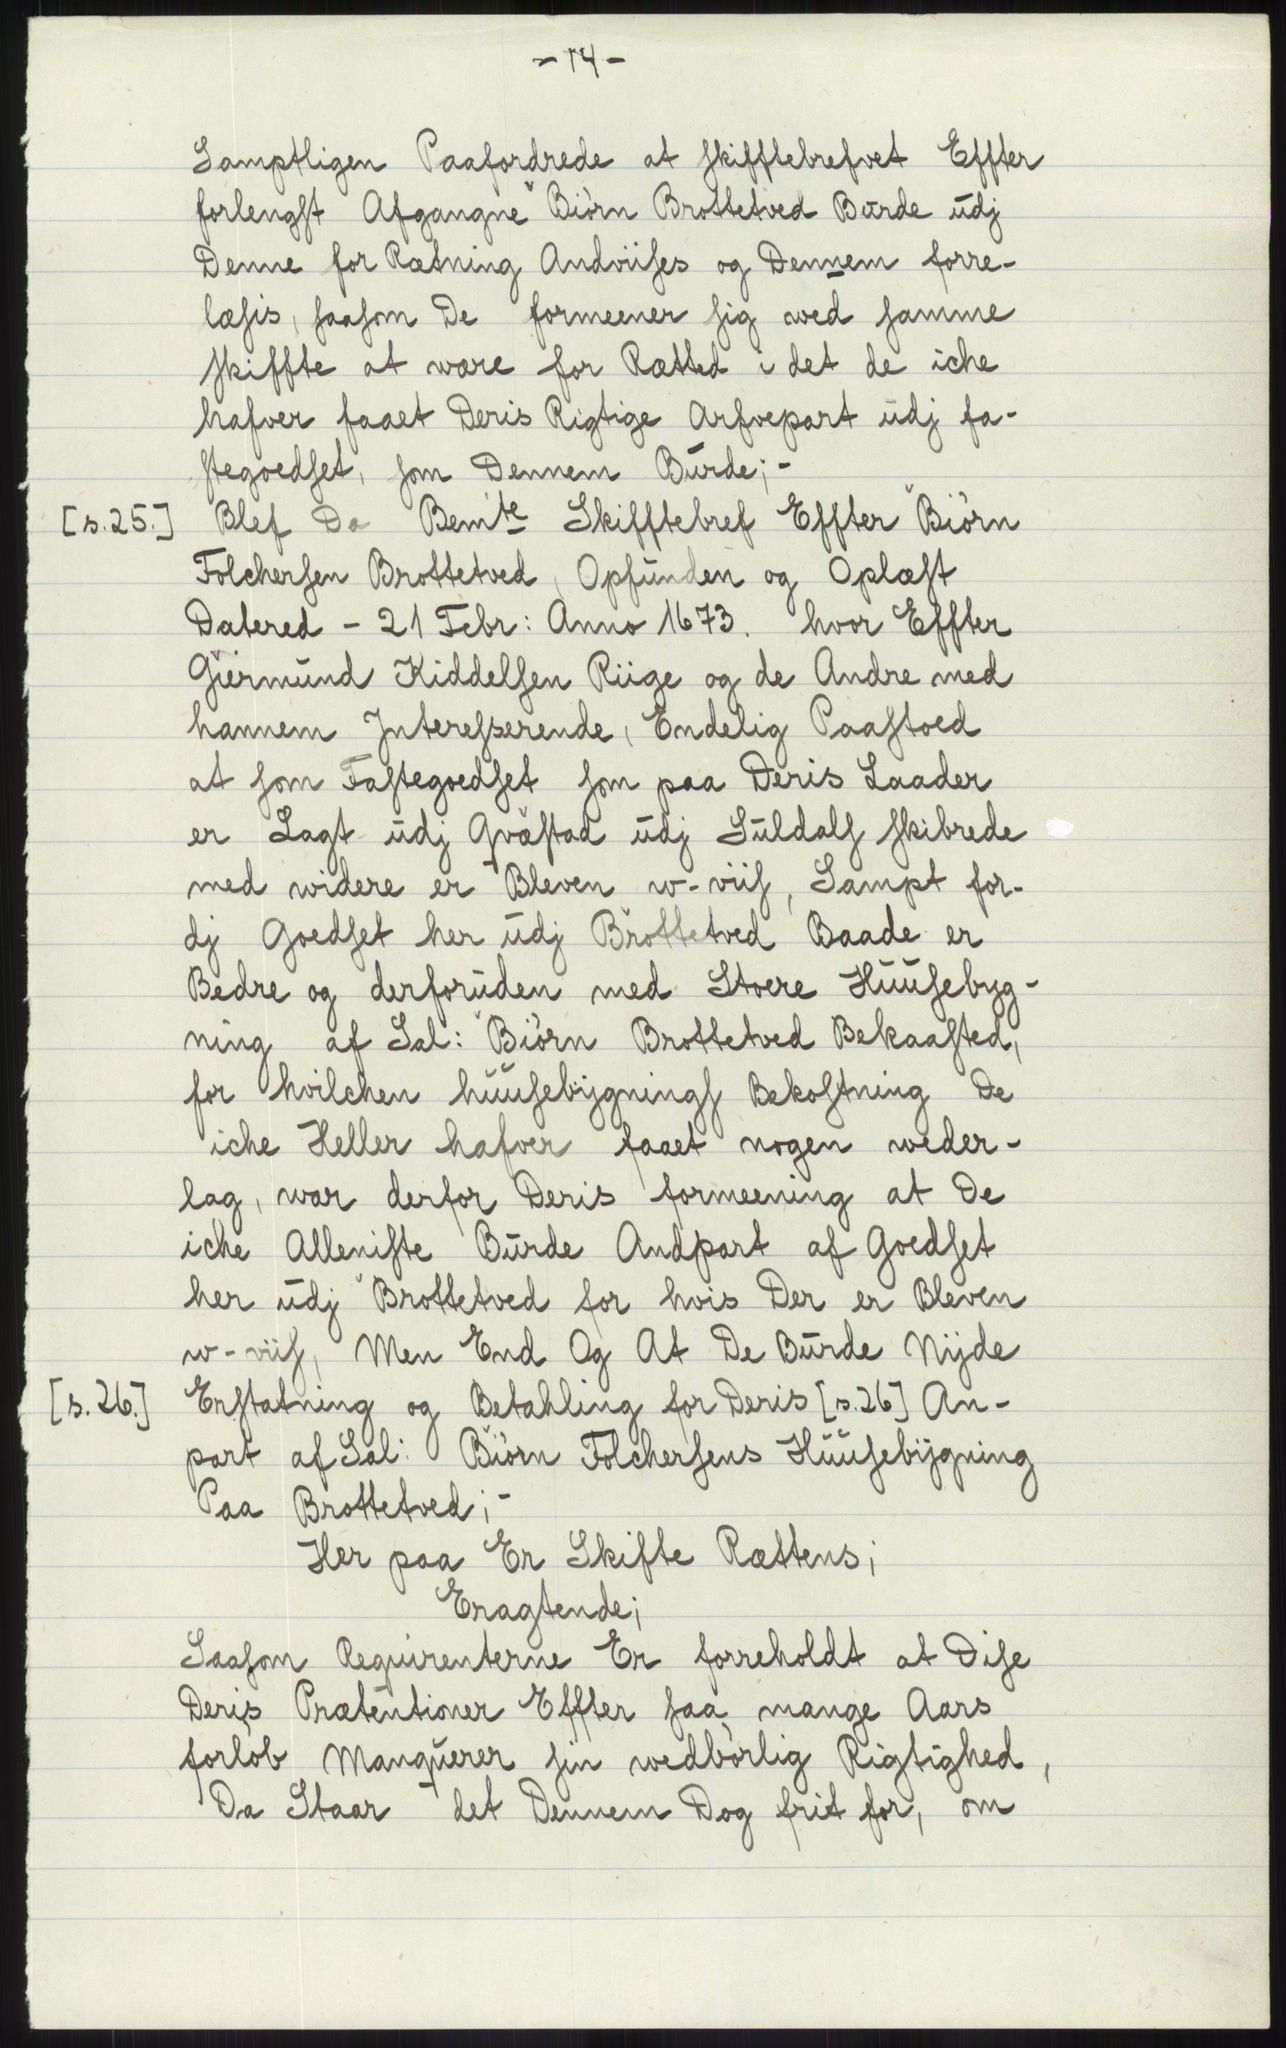 - 14 -
Samptligen Paafordrede at skifftebrefvet Effter
forlengst Afgangne Biörn Brottetved Burde udj
Denne for Rætning Andviises og Dennem forre-
læsis, saasom De formeener sig wed samme
skiffte at wære for Rætted i det de iche
hafver faaet Deris Rigtige Arfvepart udj fa-
stegoedset, som Dennem Burde;-
[s.25.] Blef Da Bemte Skifftebref Effter Biörn
Folchersen Brottetved, Opfunden og Oplæst
Datered - 21 Febr: Anno 1673. hvor Effter
Giermund Kiddelsen Riige og de Andre med
hannem Interesserende, Endelig Paastoed
at som Fastegoedset som paa Deris Laader
er Lagt udj Qvæstad udj Suldals skibrede
med widere er Bleven w-viis, Sampt for-
dj Goedset her udj Brottetved Baade er
Bedre og derforuden med Stoere Huusebyg-
ning af Sal: Biörn Brottetved Bekaasted,
for hvilchen huusebygnings Bekostning De
iche Heller hafver faaet nogen weder-
lag, war derfor Deris formeening at De
iche Alleniste Burde Andpart af Goedset
her udj Brottetved for hvis Der er Bleven
w-viis, Men End Og At De Burde Nijde
[s.26.] Erstatning og Betahling for Deris [s.26] An-
part af Sal: Biörn Folchersens Huusebijgning
Paa Brottetved;-
Her paa Er Skifte Rættens;
Eragtende;
Saasom Requirenterne Er forreholdt at Dise
Deris Prætentioner Effter saa mange Aars
forlöb Manquerer sin wedbörlig Rigtighed,
Da Staar det Dennem Dog frit for, om